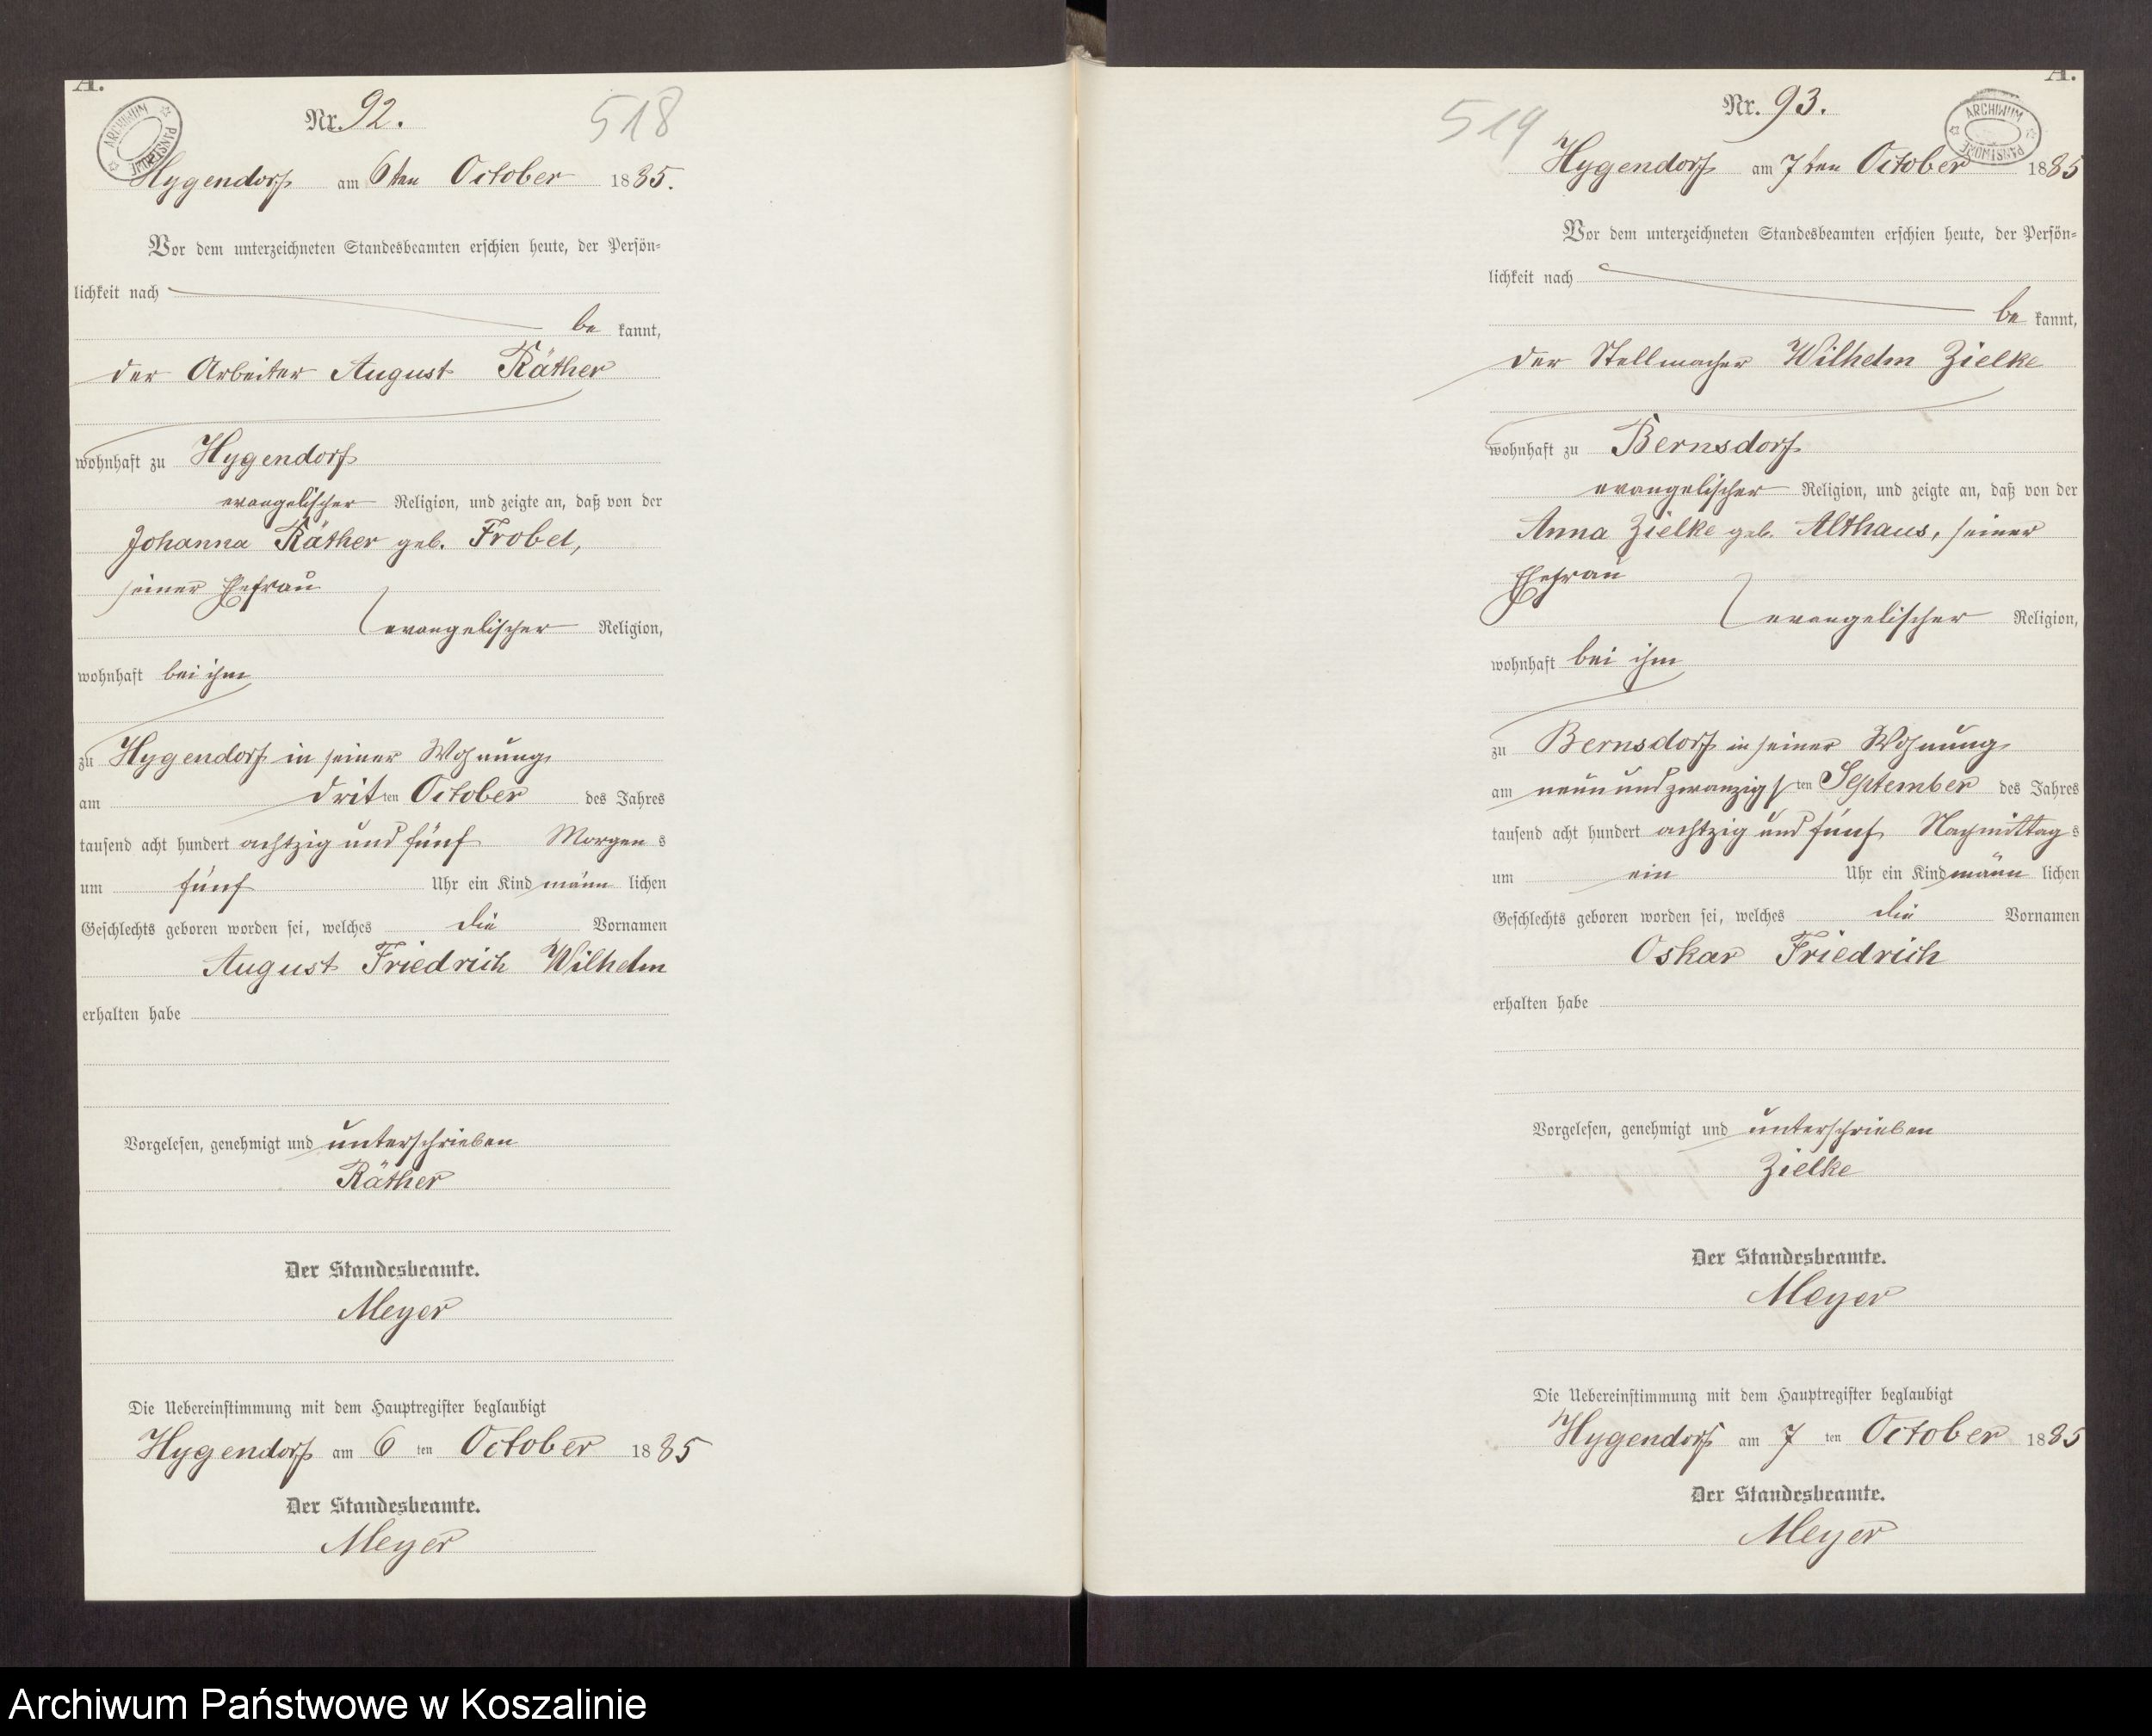 A.
ARCHIWUM PAŃSTWOWE
Nr. 92.
518
Hygendorf am 6ten October 1885.
Vor dem unterzeichneten Standesbeamten erschien heute, der Persön-
lichkeit nach
be kannt,
der Arbeiter August Räther
wohnhaft zu Hygendorf
evangelischer Religion, und zeigte an, daß von der
Johanna Räther geb. Frobel,
seiner Ehefrau
evangelischer Religion,
wohnhaft bei ihm
zu Hygendorf in seiner Wohnung
am dritten October des Jahres
tausend acht hundert achtzig und fünf Morgens
um fünf Uhr ein Kind männlichen
Geschlechts geboren worden sei, welches die Vornamen
August Friedrich Wilhelm
erhalten habe
Vorgelesen, genehmigt und unterschrieben
Räther
Der Standesbeamte.
Meyer
Die Uebereinstimmung mit dem Hauptregister beglaubigt
Hygendorf am 6 ten October 1885
Der Standesbeamte.
Meyer
A.
ARCHIWUM PAŃSTWOWE
Nr. 93.
519
Hygendorf am 7ten October 1885
Vor dem unterzeichneten Standesbeamten erschien heute, der Persön-
lichkeit nach
be kannt,
der Stellmacher Wilhelm Zielke
wohnhaft zu Bernsdorf
evangelischer Religion, und zeigte an, daß von der
Anna Zielke geb. Althaus, seiner
Ehefrau
evangelischer Religion,
wohnhaft bei ihm
zu Bernsdorf in seiner Wohnung
am neun und zwanzigsten September des Jahres
tausend acht hundert achtzig und fünf Nachmittags
um ein Uhr ein Kind männlichen
Geschlechts geboren worden sei, welches die Vornamen
Oskar Friedrich
erhalten habe
Vorgelesen, genehmigt und unterschrieben
Zielke
Der Standesbeamte.
Meyer
Die Uebereinstimmung mit dem Hauptregister beglaubigt
Hygendorf am 7 ten October 1885
Der Standesbeamte.
Meyer
Archiwum Państwowe w Koszalinie